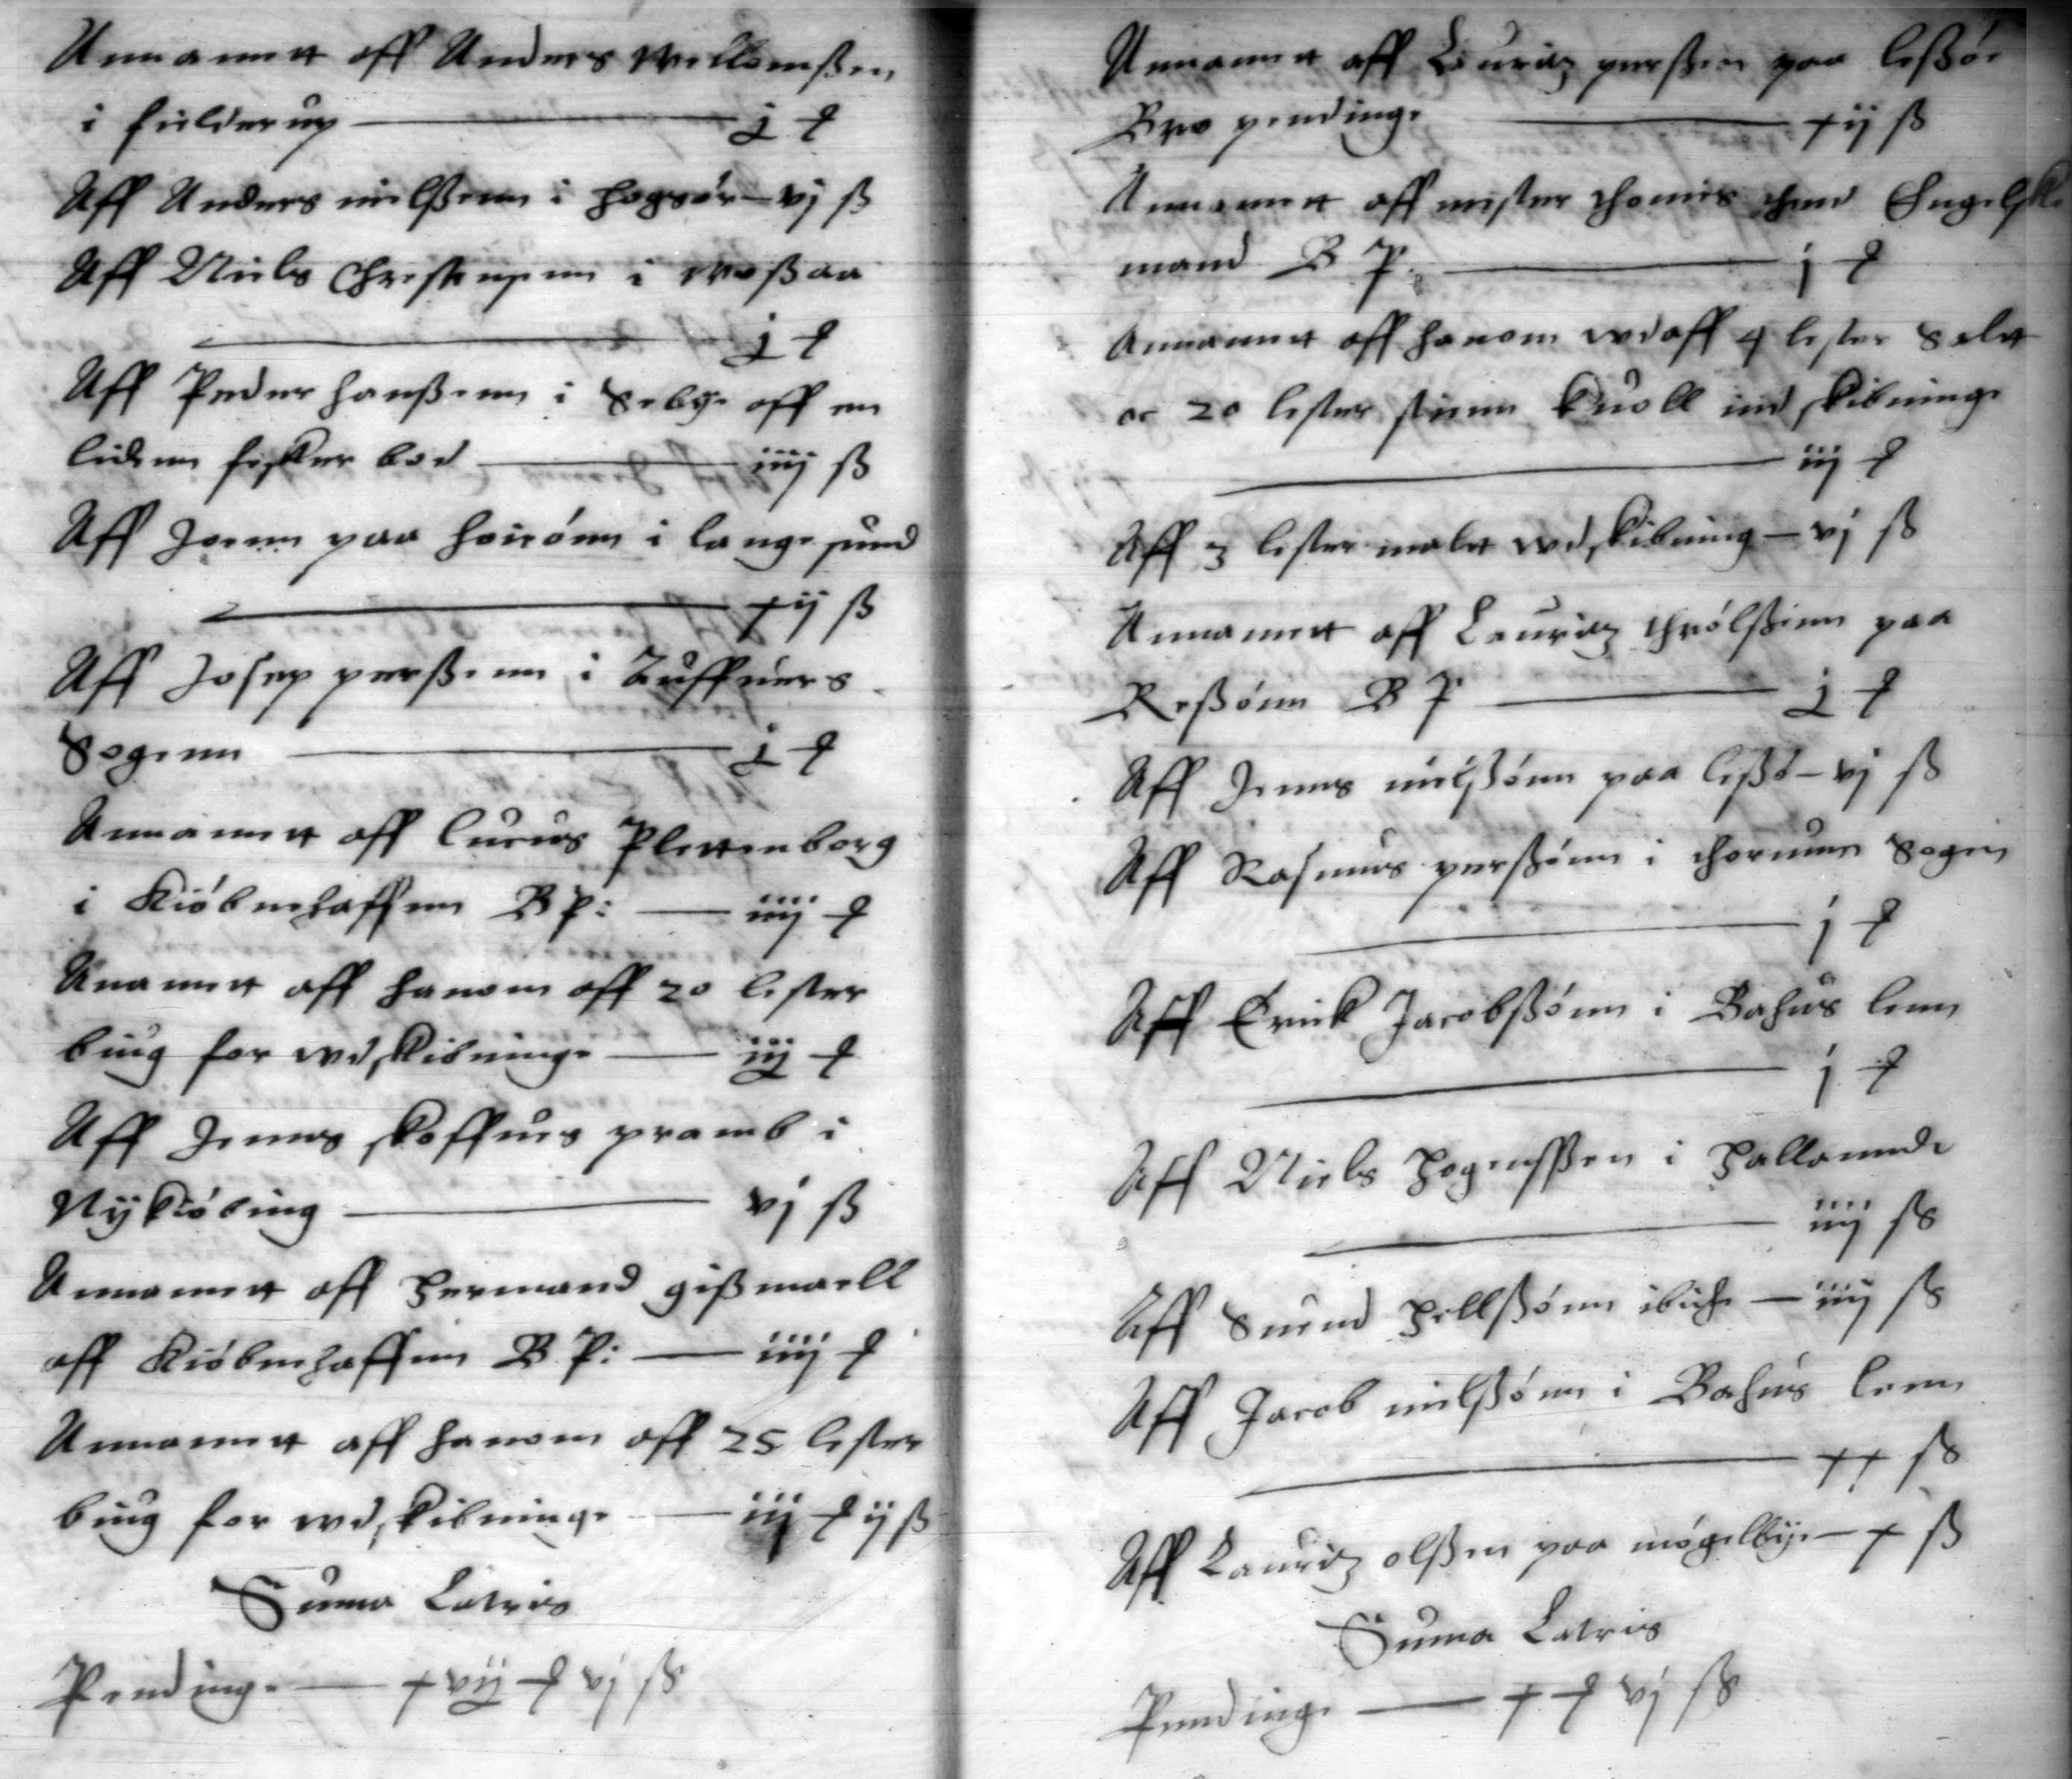 Annammett aff Anders Willomßen
i fielderup — j ₰
Aff Anders nielßenn i hogsør — vj ß
Aff Niels Christensenn i Woßaa
— j ₰
Aff Peder hanßenn i Sebye aff en
lidenn fisker bod — iiij ß
Aff Joenn paa hoieönn i lange sund
— xij ß
Aff Josep perßenn i Tuffuers
Sogenn — j ₰
Annammett aff lucus Plettenborg
i Kiöbnehaffenn B P: — iiij ₰
Anammett aff hanom aff 20 lester
biug for wdskibninge — iij ₰
Aff Jenns skoffues pramb i
Nykiöbing — vj ß
Annammett aff Hermand gißmaell
aff Kiöbenhaffenn B P: — iiij ₰
Annammett aff hanom aff 25 lester
biug for wdskibninge — iij ₰ ij ß
Suma Latris
Pendinge — xvij ₰ vj ß
Annammett aff Lauritz perßen paa leßöe
Bro pendinge — xij ß
Annammett aff mester thomis Engelske
mand B P. — j ₰
Annammett aff hanom wdaff 4 lester Salt
oc 20 lester stienn kuoll ind skibninge
— iij ₰
Aff 3 lester malt wdskibning — vj ß
Annammett aff Lauritz thrölßenn paa
Reßönn B P — j ₰
Aff Jenns nielßönn paa leßö — vj ß
Aff Rasmus perßönn i thorumm Sogen
— j ₰
Aff Erick Jacobßönn i Bahus lenn
— j ₰
Aff Niels Hogensßen i Hallannde
— iiij ß
Aff Suend Pellßönn ibid — iiij ß
Aff Jacob nielßönn i Bahus lenn
— xx ß
Aff Lauritz olßen paa mögelbye — x ß
Suma Latris
Pendinge — x ₰ vj ß